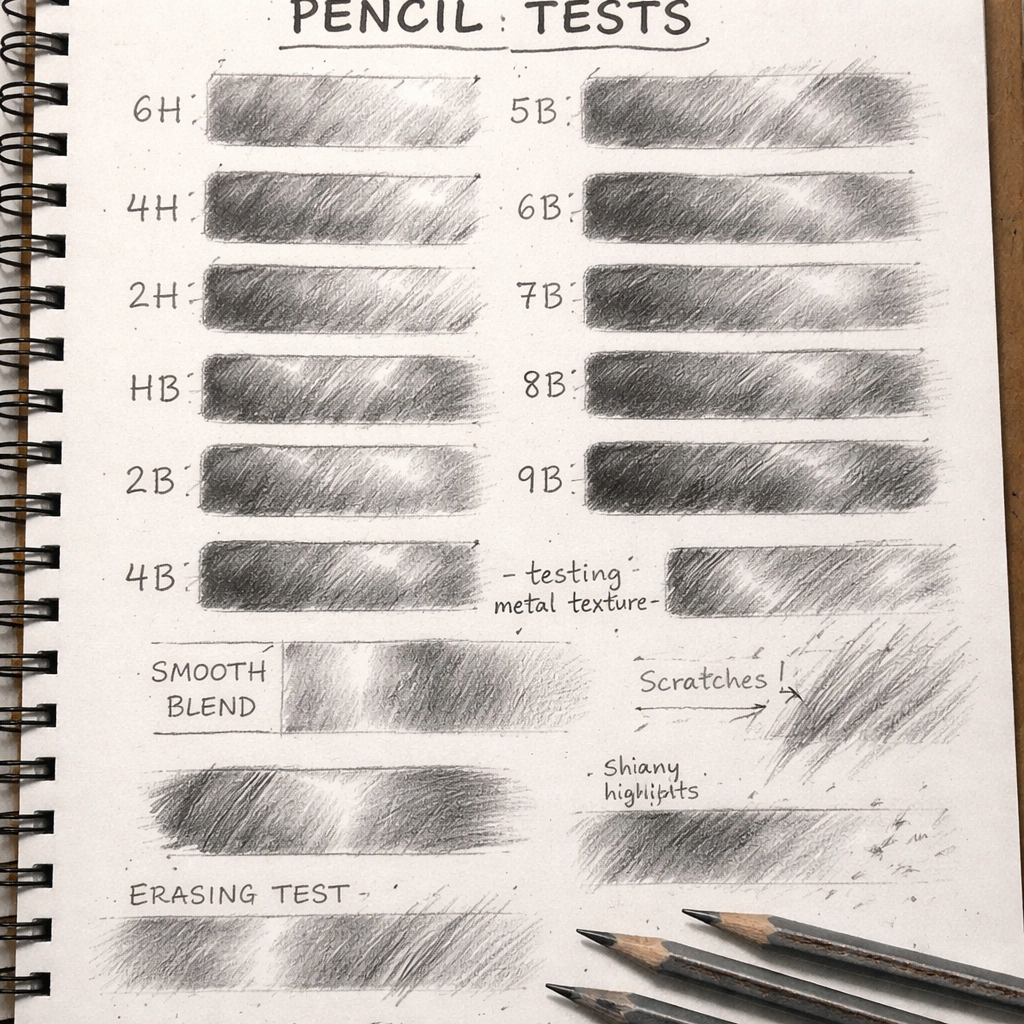 PENCIL : TESTS
6H :
4H :
2H :
HB :
2B :
4B :
5B :
6B :
7B :
8B :
9B :
- testing -
metal texture-
SMOOTH
BLEND
Scratches !
Shiany
highliplts
ERASING TEST -